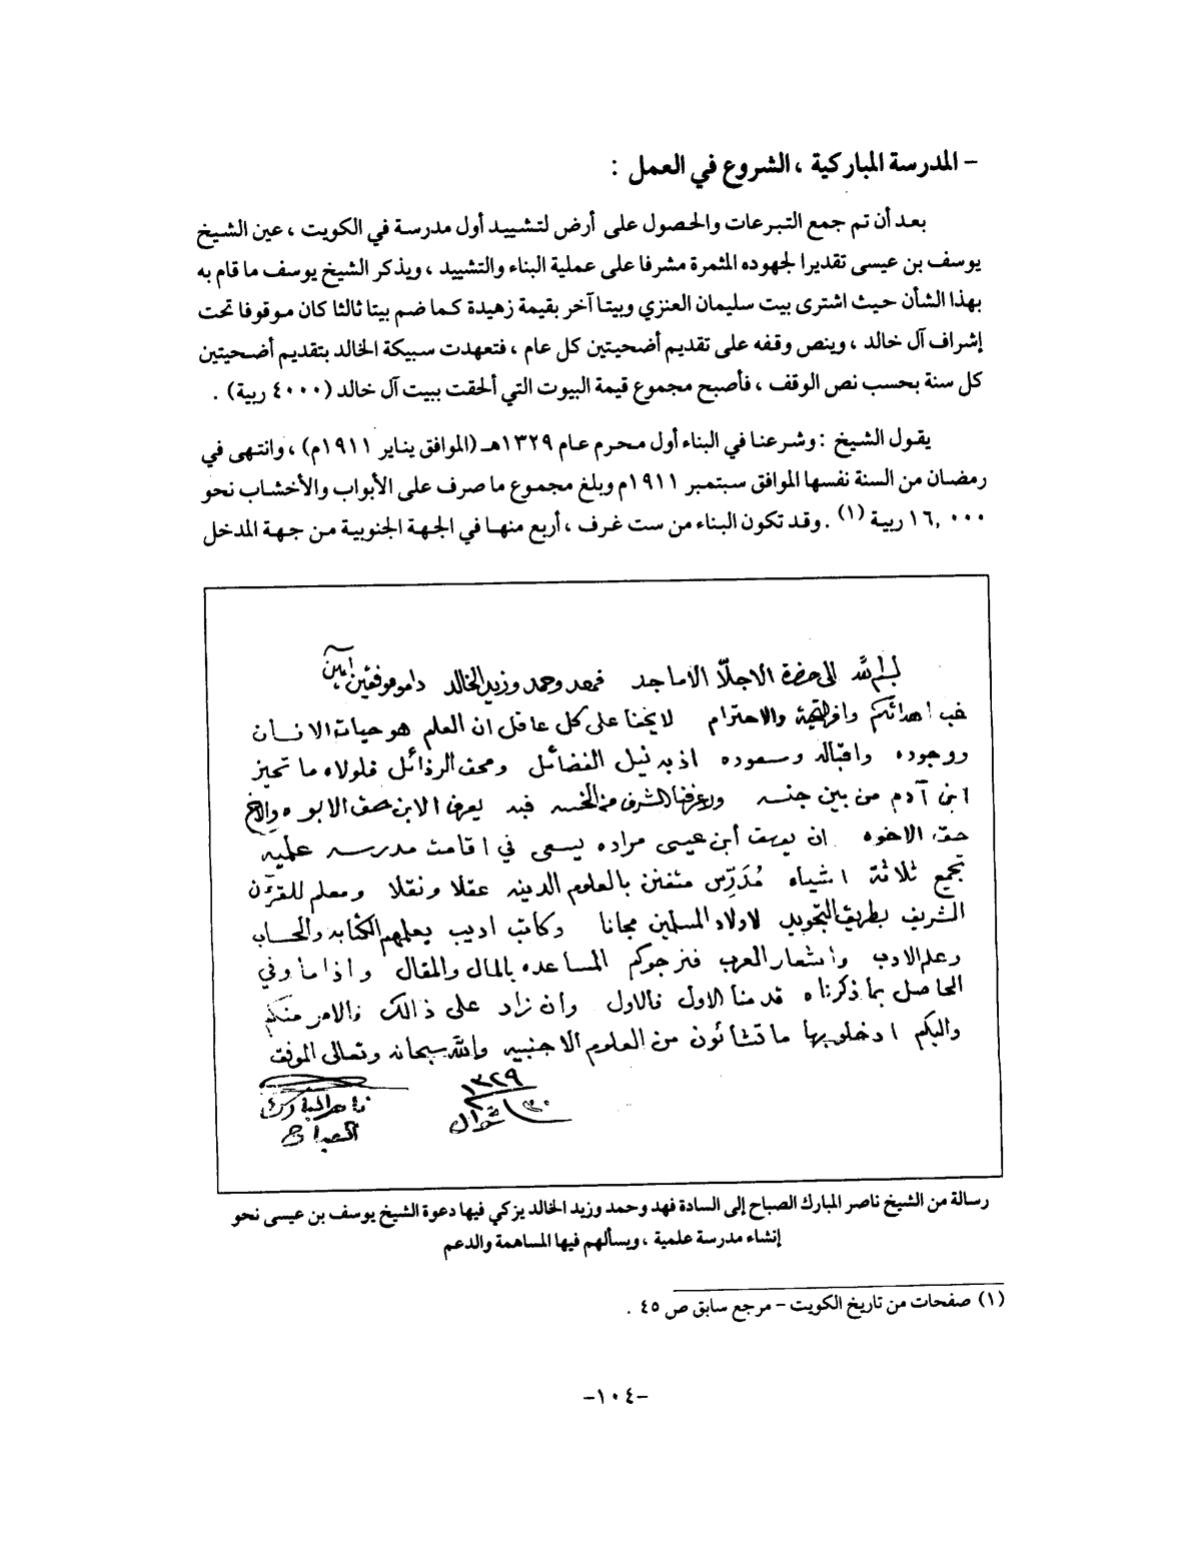 – المدرسة المباركية ، الشروع في العمل :
بعد أن تم جمع التبرعات والحصول على أرض لتشييد أول مدرسة في الكويت ، عين الشيخ
يوسف بن عيسى تقديرا لجهوده المثمرة مشرفا على عملية البناء والتشييد ، ويذكر الشيخ يوسف ما قام به
بهذا الشأن حيث اشترى بيت سليمان العنزي وبيتا آخر بقيمة زهيدة كما ضم بيتا ثالثا كان موقوفا تحت
إشراف آل خالد ، وينص وقفه على تقديم أضحيتين كل عام ، فتعهدت سبيكة الخالد بتقديم أضحيتين
كل سنة بحسب نص الوقف ، فأصبح مجموع قيمة البيوت التي ألحقت ببيت آل خالد (٤٠٠٠ ربية) .
يقول الشيخ : وشرعنا في البناء أول محرم عام ١٣٢٩هـ (الموافق يناير ١٩١١م) ، وانتهى في
رمضان من السنة نفسها الموافق سبتمبر ١٩١١م وبلغ مجموع ما صرف على الأبواب والأخشاب نحو
١٦,٠٠٠ ربية (١) . وقد تكون البناء من ست غرف ، أربع منها في الجهة الجنوبية من جهة المدخل
بسم الله الى حضرة الاجلّا الاماجد فهد وحمد وزيد الخالد دامو موفقين امين
غب اهدائكم وافر التحية والاحترام لا يخفا على كل عاقل ان العلم هو حيات الانسان
ووجوده واقباله وسعوده اذ به نيل الفضائل ومحق الرذائل فلولاه ما تميز
ابن آدم من بين جنسه فبه يعرف الابن حق الابوه والاخ
حق الاخوه ان يوسف أبن عيسى مراده يسعى في اقامت مدرسه علميه
تجمع ثلاثة اشياء مُدَرِّس متفنن بالعلوم الدينه عقلا ونقلا ومعلم للقرآن
الشريف بطريق التجويد لاولاد المسلمين مجانا وكاتب اديب يعلمهم الكتابه والحساب
وعلم الادب واشعار العرب فنرجوكم المساعده بالمال والمقال واذا ما وفي
الحاصل بما ذكرناه قدمنا الاول فالاول وان زاد على ذالك فالامر منكم
واليكم ادخلو بها ما تشائون من العلوم الاجنبيه والله سبحانه وتعالى الموفق
١٣٢٩
شوال
ناصر المبارك
الصباح
رسالة من الشيخ ناصر المبارك الصباح إلى السادة فهد وحمد وزيد الخالد يزكي فيها دعوة الشيخ يوسف بن عيسى نحو
إنشاء مدرسة علمية ، ويسألهم فيها المساهمة والدعم
(١) صفحات من تاريخ الكويت – مرجع سابق ص ٤٥ .
–١٠٤–